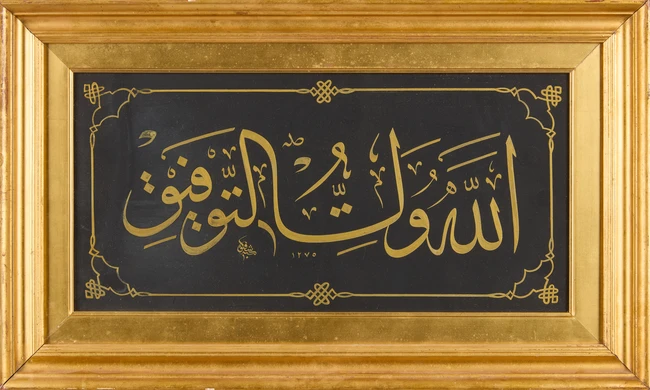 اللّٰهُ وَلِيُّ التَّوْفِيقِ
١٢٧٥